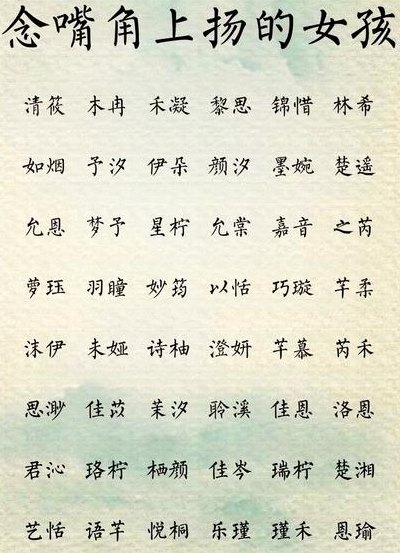 念嘴角上扬的女孩
清筱 木冉 禾凝 黎思 锦惜 林希
如烟 予汐 伊朵 颜汐 墨婉 楚遥
允恩 梦予 星柠 允棠 嘉音 之芮
萝珏 羽瞳 妙筠 以恬 巧璇 芊柔
沫伊 未娅 诗柚 澄妍 芊慕 芮禾
思渺 佳苡 茉汐 聆溪 佳恩 洛恩
君沁 珞柠 栖颜 佳岑 瑞柠 楚湘
艺恬 语芊 悦桐 乐瑾 瑾禾 恩瑜